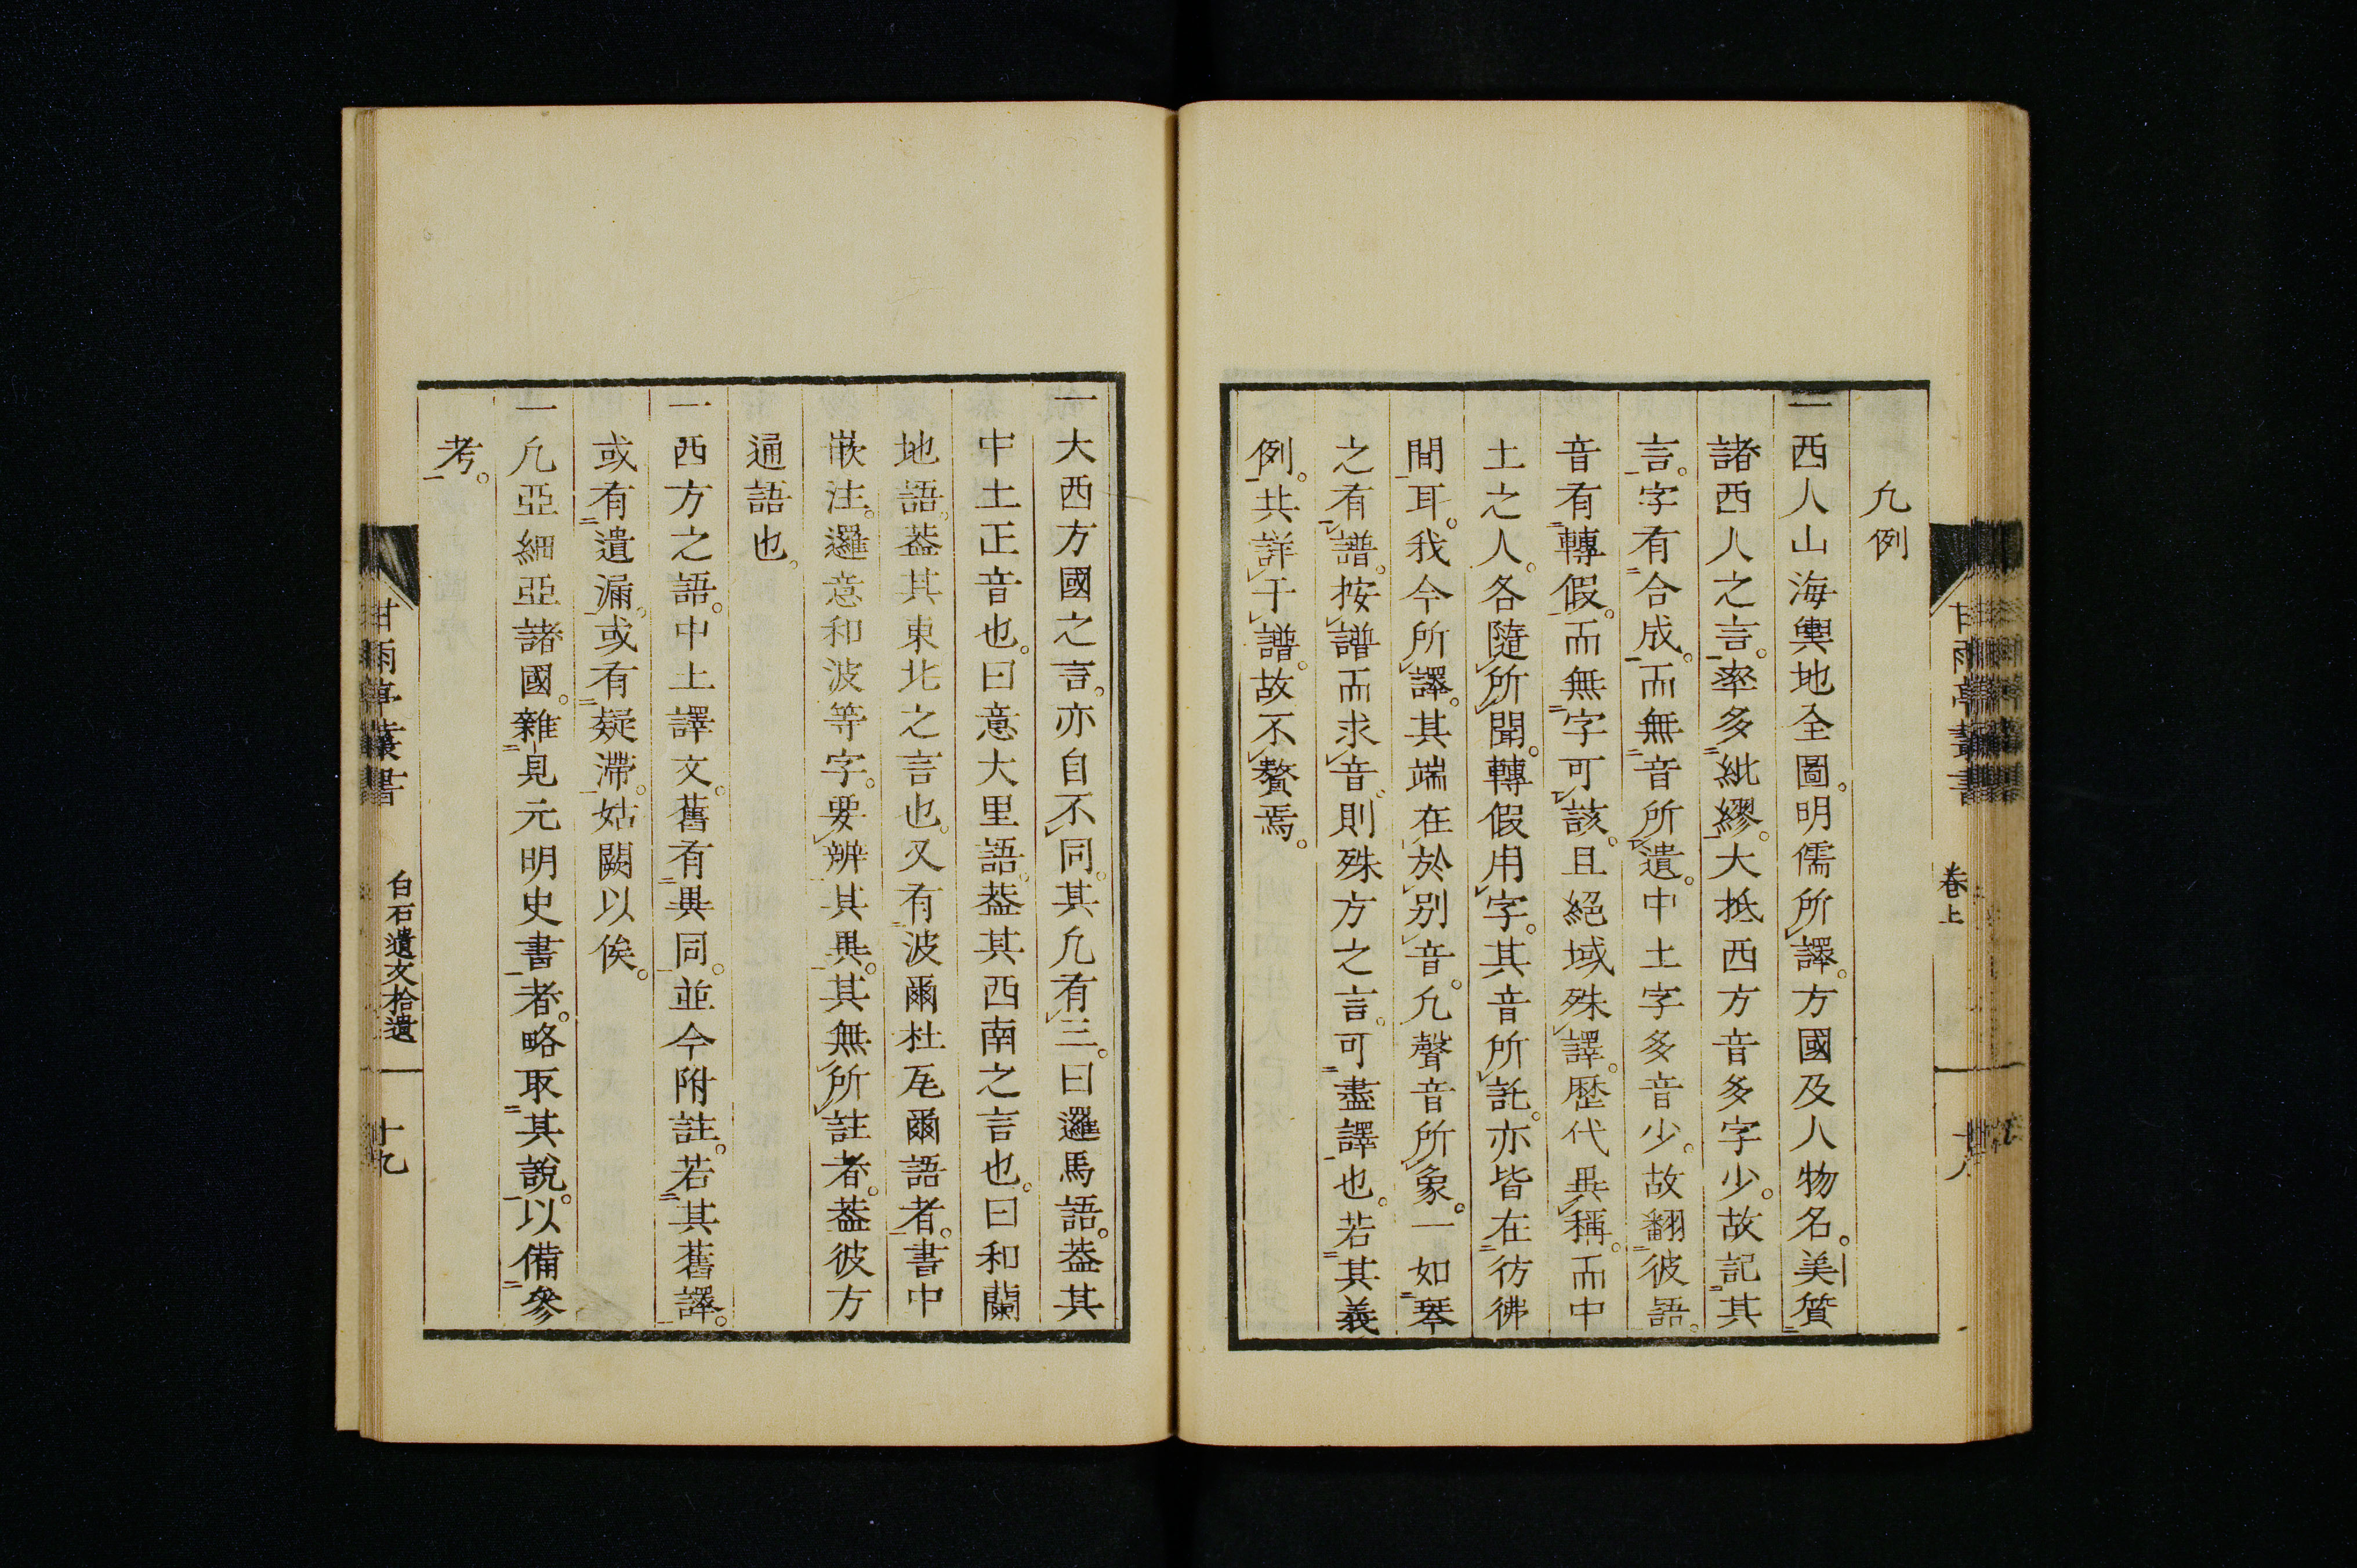 凢例
一西人山海輿地全圖。明儒所譯。方國及人物名。美質
諸西人之言。率多紕繆。大抵西方音多字少。故記其
言。字有合成。而無音所遺。中土字多音少。故翻彼語。
音有轉假。而無字可該。且絕域殊譯。歷代異稱。而中
土之人。各隨所聞。轉假用字。其音所託。亦皆在彷彿
間耳。我今所譯。其端在於別音。凢聲音所象。一如琴
之有譜。按譜而求音。則殊方之言。可盡譯也。若其義
例。共詳于譜。故不贅焉。
甘雨亭叢書
卷上
一大西方國之言。亦自不同。其凢有三。曰邏馬語。葢其
中土正音也。曰意大里語。葢其西南之言也。曰和蘭
地語。葢其東北之言也。又有波爾杜瓦爾語者。書中
嵌注。邏意和波等字。要辨其異。其無所註者。葢彼方
通語也。
一西方之語。中土譯文。舊有異同。並今附註。若其舊譯。
或有遺漏。或有疑滯。姑闕以俟。
一凢亞細亞諸國。雜見元明史書者。略取其說。以備參
考。
甘雨亭叢書
白石遺文拾遺
十九